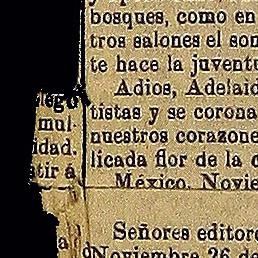 bosques, como en
tros salones el son
te hace la juventu
Adios, Adelaid
tistas y se corona
nuestros corazone
licada flor de la c
México, Novie
Señores editor
Noviembre 26 de
legó
mul-
idad.
atir á
a